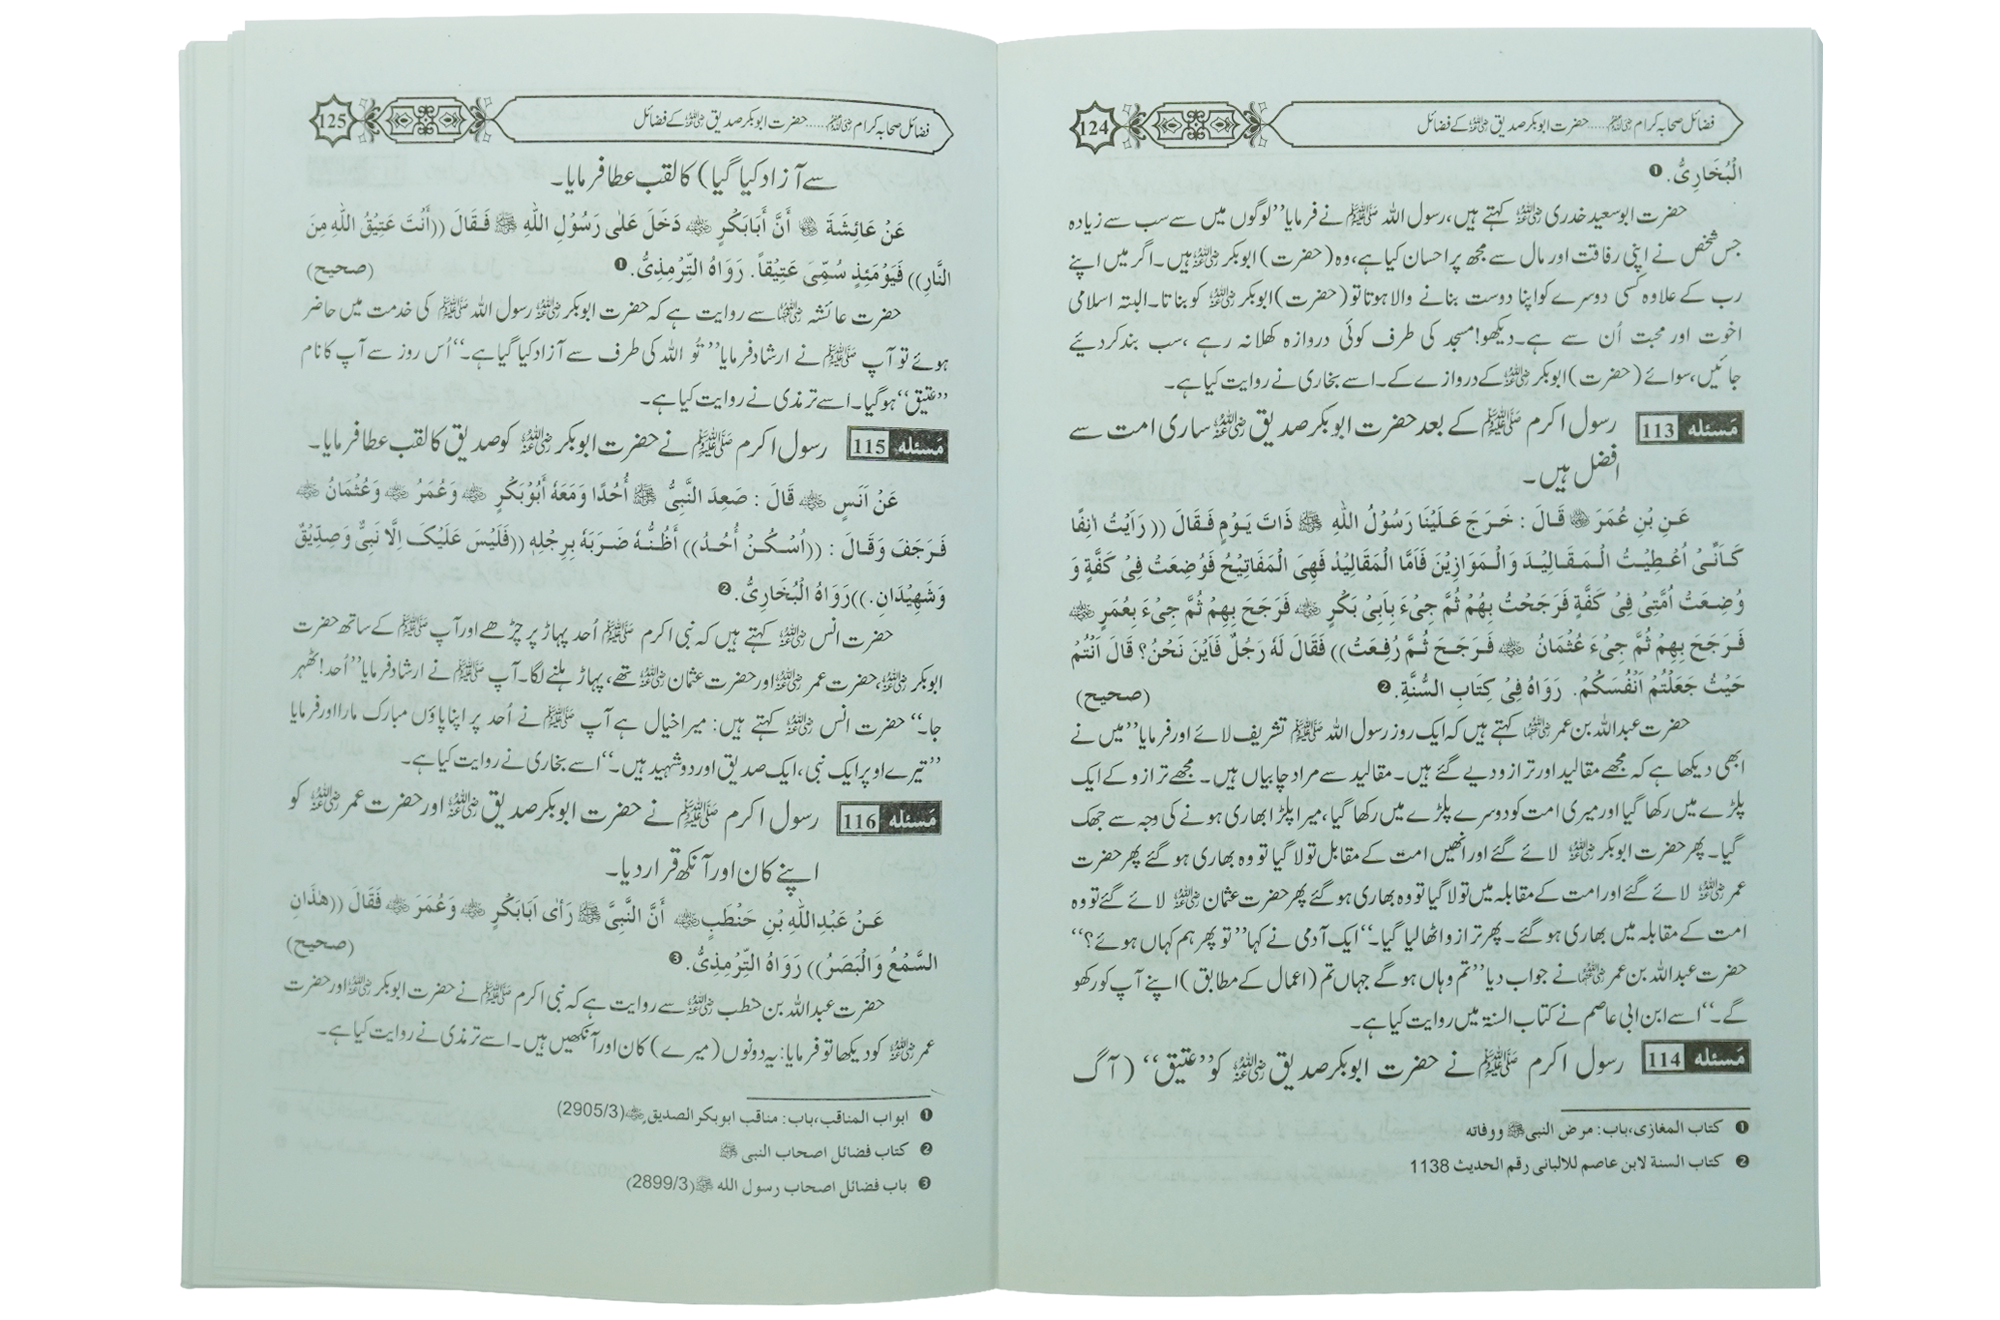 فضائل صحابہ کرام رضی اللہ عنہم..... حضرت ابوبکر صدیق رضی اللہ عنہ کے فضائل
124
الْبُخَارِیُّ. ❶
حضرت ابوسعید خدری رضی اللہ عنہ کہتے ہیں، رسول اللہ ﷺ نے فرمایا ’’لوگوں میں سے سب سے زیادہ
جس شخص نے اپنی رفاقت اور مال سے مجھ پر احسان کیا ہے، وہ (حضرت) ابوبکر رضی اللہ عنہ ہیں۔ اگر میں اپنے
رب کے علاوہ کسی دوسرے کو اپنا دوست بنانے والا ہوتا تو (حضرت) ابوبکر رضی اللہ عنہ کو بناتا۔ البتہ اسلامی
اخوت اور محبت اُن سے ہے۔ دیکھو! مسجد کی طرف کوئی دروازہ کھلا نہ رہے، سب بند کر دئیے
جائیں، سوائے (حضرت) ابوبکر رضی اللہ عنہ کے دروازے کے۔ اسے بخاری نے روایت کیا ہے۔
مَسئله 113 رسول اکرم ﷺ کے بعد حضرت ابوبکر صدیق رضی اللہ عنہ ساری امت سے
افضل ہیں۔
عَنِ بْنِ عُمَرَ رضی اللہ عنہ قَالَ : خَرَجَ عَلَیْنَا رَسُوْلُ اللّٰہِ ﷺ ذَاتَ یَوْمٍ فَقَالَ (( رَاَیْتُ اٰنِفًا
کَاَنِّیْ اُعْطِیْتُ الْمَقَالِیْدَ وَالْمَوَازِیْنَ فَاَمَّا الْمَقَالِیْدُ فَهِیَ الْمَفَاتِیْحُ فَوُضِعَتْ فِیْ کَفَّةٍ وَ
وُضِعَتْ اُمَّتِیْ فِیْ کَفَّةٍ فَرَجَحْتُ بِهِمْ ثُمَّ جِیْءَ بِاَبِیْ بَکْرٍ رضی اللہ عنہ فَرَجَحَ بِهِمْ ثُمَّ جِیْءَ بِعُمَرٍ رضی اللہ عنہ
فَرَجَحَ بِهِمْ ثُمَّ جِیْءَ عُثْمَانُ رضی اللہ عنہ فَرَجَحَ ثُمَّ رُفِعَتْ)) فَقَالَ لَهٗ رَجُلٌ فَاَیْنَ نَحْنُ؟ قَالَ اَنْتُمْ
حَیْثُ جَعَلْتُمْ اَنْفُسَکُمْ. رَوَاهُ فِیْ کِتَابِ السُّنَّةِ. ❷ (صحیح)
حضرت عبداللہ بن عمر رضی اللہ عنہما کہتے ہیں کہ ایک روز رسول اللہ ﷺ تشریف لائے اور فرمایا ’’میں نے
ابھی دیکھا ہے کہ مجھے مقالید اور ترازو دیے گئے ہیں۔ مقالید سے مراد چابیاں ہیں۔ مجھے ترازو کے ایک
پلڑے میں رکھا گیا اور میری امت کو دوسرے پلڑے میں رکھا گیا، میرا پلڑا بھاری ہونے کی وجہ سے جھک
گیا۔ پھر حضرت ابوبکر رضی اللہ عنہ لائے گئے اور انھیں امت کے مقابل تولا گیا تو وہ بھاری ہو گئے پھر حضرت
عمر رضی اللہ عنہ لائے گئے اور امت کے مقابلہ میں تولا گیا تو وہ بھاری ہو گئے پھر حضرت عثمان رضی اللہ عنہ لائے گئے تو وہ
امت کے مقابلہ میں بھاری ہو گئے۔ پھر ترازو اٹھا لیا گیا۔‘‘ ایک آدمی نے کہا ’’تو پھر ہم کہاں ہوئے؟‘‘
حضرت عبداللہ بن عمر رضی اللہ عنہما نے جواب دیا ’’تم وہاں ہو گے جہاں تم (اعمال کے مطابق) اپنے آپ کو رکھو
گے۔‘‘ اسے ابن ابی عاصم نے کتاب السنۃ میں روایت کیا ہے۔
مَسئله 114 رسول اکرم ﷺ نے حضرت ابوبکر صدیق رضی اللہ عنہ کو ’’عتیق‘‘ (آگ
❶ کتاب المغازی، باب: مرض النبی ﷺ ووفاته
❷ کتاب السنة لابن عاصم للالبانی رقم الحدیث 1138
فضائل صحابہ کرام رضی اللہ عنہم..... حضرت ابوبکر صدیق رضی اللہ عنہ کے فضائل
125
سے آزاد کیا گیا) کا لقب عطا فرمایا۔
عَنْ عَائِشَةَ رضی اللہ عنہا أَنَّ أَبَابَکْرٍ رضی اللہ عنہ دَخَلَ عَلٰی رَسُوْلِ اللّٰہِ ﷺ فَقَالَ ((أَنْتَ عَتِیْقُ اللّٰهِ مِنَ
النَّارِ)) فَیَوْمَئِذٍ سُمِّیَ عَتِیْقاً. رَوَاهُ التِّرْمِذِیُّ. ❶ (صحیح)
حضرت عائشہ رضی اللہ عنہا سے روایت ہے کہ حضرت ابوبکر رضی اللہ عنہ رسول اللہ ﷺ کی خدمت میں حاضر
ہوئے تو آپ ﷺ نے ارشاد فرمایا ’’تُو اللہ کی طرف سے آزاد کیا گیا ہے۔‘‘ اُس روز سے آپ کا نام
’’عتیق‘‘ ہو گیا۔ اسے ترمذی نے روایت کیا ہے۔
مَسئله 115 رسول اکرم ﷺ نے حضرت ابوبکر رضی اللہ عنہ کو صدیق کا لقب عطا فرمایا۔
عَنْ اَنَسٍ رضی اللہ عنہ قَالَ : صَعِدَ النَّبِیُّ ﷺ أُحُدًا وَمَعَهٗ أَبُوْبَکْرٍ رضی اللہ عنہ وَعُمَرُ رضی اللہ عنہ وَعُثْمَانُ رضی اللہ عنہ
فَرَجَفَ وَقَالَ : ((اُسْکُنْ اُحُدُ)) أَظُنُّهٗ ضَرَبَهٗ بِرِجْلِهٖ ((فَلَیْسَ عَلَیْکَ اِلَّا نَبِیٌّ وَصِدِّیْقٌ
وَشَهِیْدَانِ.)) رَوَاهُ الْبُخَارِیُّ. ❷
حضرت انس رضی اللہ عنہ کہتے ہیں کہ نبی اکرم ﷺ اُحد پہاڑ پر چڑھے اور آپ ﷺ کے ساتھ حضرت
ابوبکر رضی اللہ عنہ، حضرت عمر رضی اللہ عنہ اور حضرت عثمان رضی اللہ عنہ تھے، پہاڑ ہلنے لگا۔ آپ ﷺ نے ارشاد فرمایا ’’اُحد! ٹھہر
جا۔‘‘ حضرت انس رضی اللہ عنہ کہتے ہیں: میرا خیال ہے آپ ﷺ نے اُحد پر اپنا پاؤں مبارک مارا اور فرمایا
’’تیرے اوپر ایک نبی، ایک صدیق اور دو شہید ہیں۔‘‘ اسے بخاری نے روایت کیا ہے۔
مَسئله 116 رسول اکرم ﷺ نے حضرت ابوبکر صدیق رضی اللہ عنہ اور حضرت عمر رضی اللہ عنہ کو
اپنے کان اور آنکھ قرار دیا۔
عَنْ عَبْدِاللّٰهِ بْنِ حَنْطَبٍ رضی اللہ عنہ أَنَّ النَّبِیَّ ﷺ رَأٰی اَبَابَکْرٍ رضی اللہ عنہ وَعُمَرَ رضی اللہ عنہ فَقَالَ ((هٰذَانِ
السَّمْعُ وَالْبَصَرُ)) رَوَاهُ التِّرْمِذِیُّ. ❸ (صحیح)
حضرت عبداللہ بن حنطب رضی اللہ عنہ سے روایت ہے کہ نبی اکرم ﷺ نے حضرت ابوبکر رضی اللہ عنہ اور حضرت
عمر رضی اللہ عنہ کو دیکھا تو فرمایا: یہ دونوں (میرے) کان اور آنکھیں ہیں۔ اسے ترمذی نے روایت کیا ہے۔
❶ ابواب المناقب، باب: مناقب ابوبکر الصدیق رضی اللہ عنہ (2905/3)
❷ کتاب فضائل اصحاب النبی ﷺ
❸ باب فضائل اصحاب رسول الله ﷺ (2899/3)